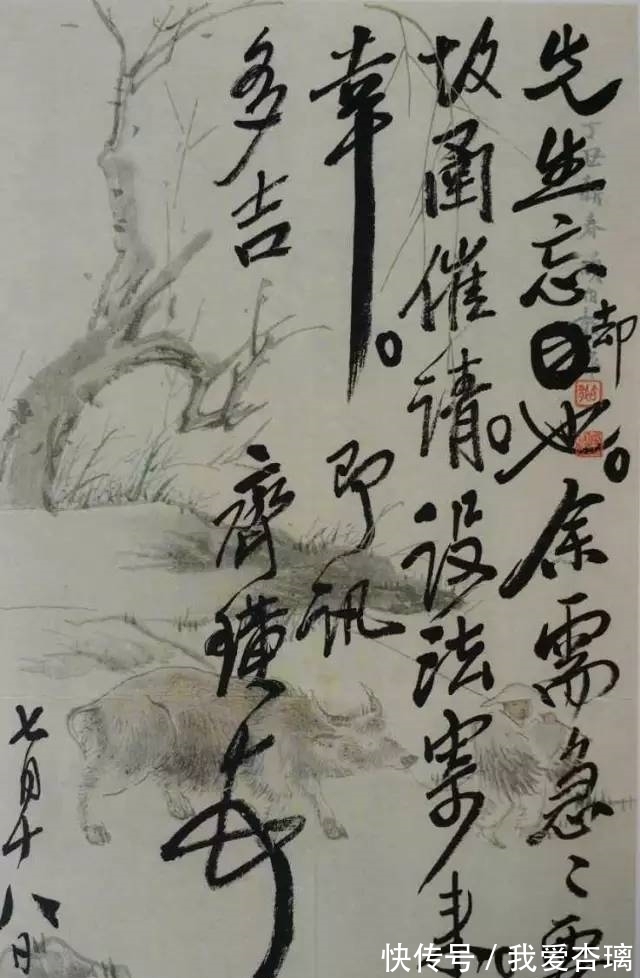 先生忘却也。余需急〻
故函催請。設法寄来。
幸。 即訊
多吉 齊璜
七月十八日
快传号/我爱杏璃